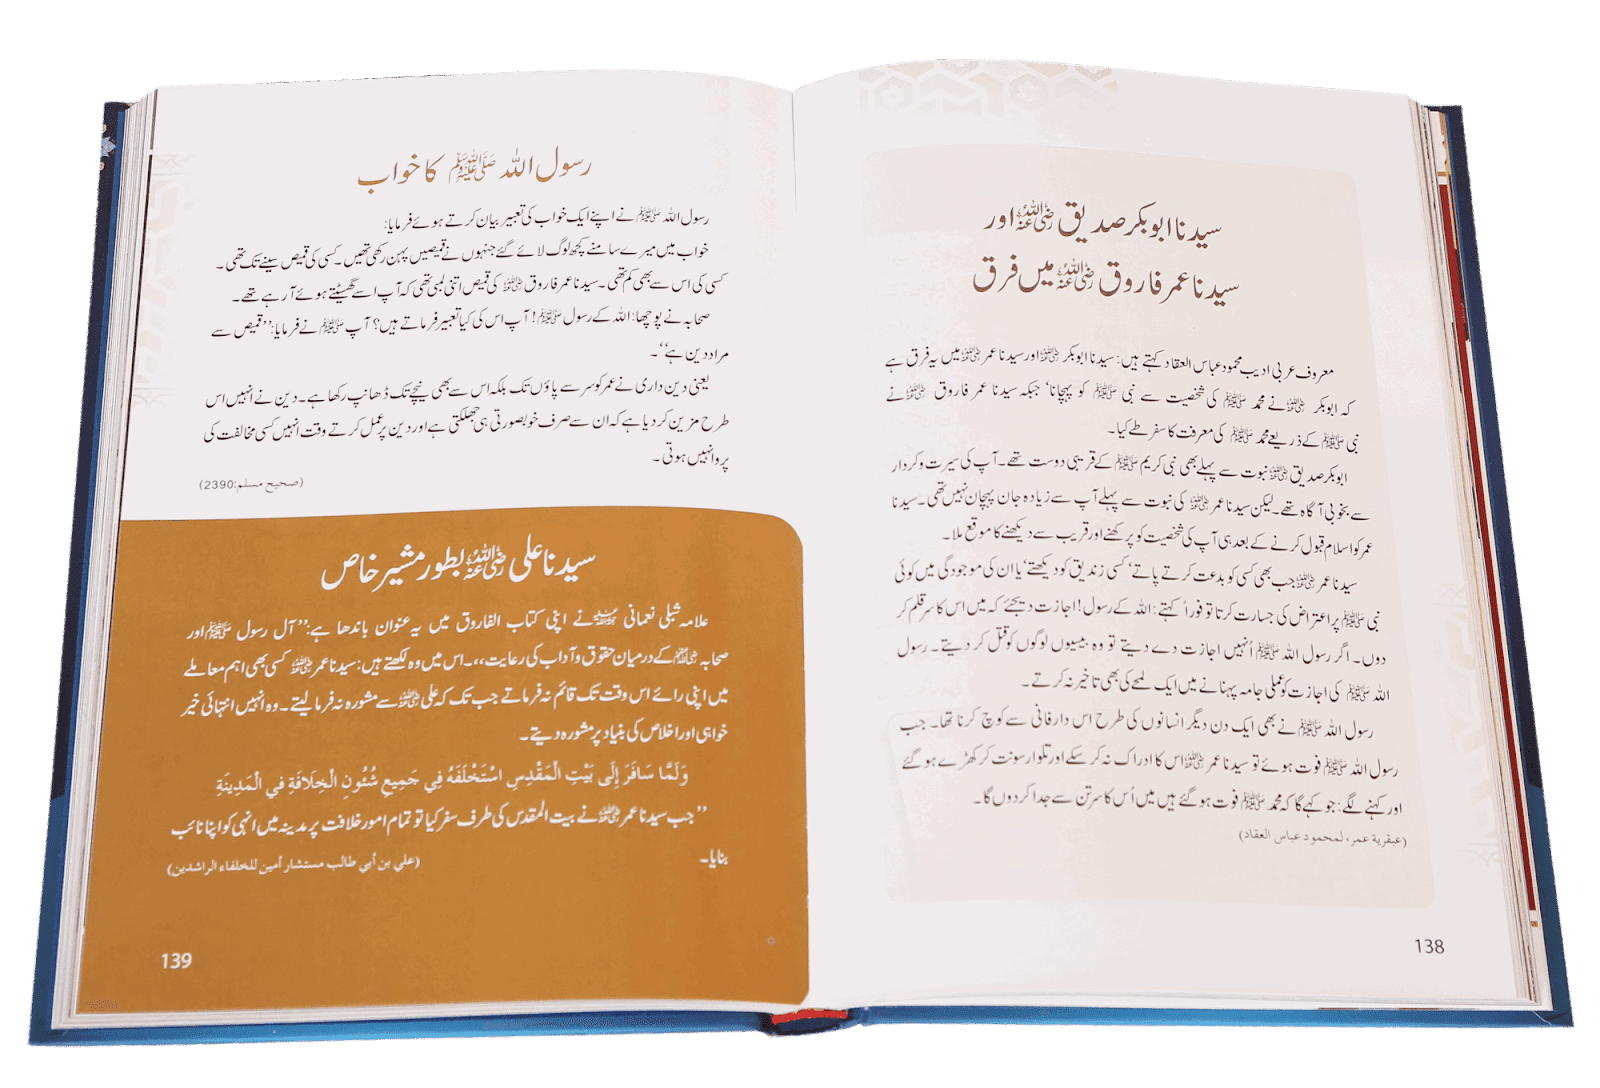 سیدنا ابوبکر صدیق رضی اللہ عنہ اور
سیدنا عمر فاروق رضی اللہ عنہ میں فرق
معروف عربی ادیب محمود عباس العقاد کہتے ہیں: سیدنا ابوبکر رضی اللہ عنہ اور سیدنا عمر رضی اللہ عنہ میں یہ فرق ہے
کہ ابوبکر رضی اللہ عنہ نے محمد ﷺ کی شخصیت سے نبی ﷺ کو پہچانا‘ جبکہ سیدنا عمر فاروق رضی اللہ عنہ نے
نبی ﷺ کے ذریعے محمد ﷺ کی معرفت کا سفر طے کیا۔
ابوبکر صدیق رضی اللہ عنہ نبوت سے پہلے بھی نبی کریم ﷺ کے قریبی دوست تھے۔ آپ کی سیرت و کردار
سے بخوبی آگاہ تھے۔ لیکن سیدنا عمر رضی اللہ عنہ کی نبوت سے پہلے آپ سے زیادہ جان پہچان نہیں تھی۔ سیدنا
عمر کو اسلام قبول کرنے کے بعد ہی آپ کی شخصیت کو پرکھنے اور قریب سے دیکھنے کا موقع ملا۔
سیدنا عمر رضی اللہ عنہ جب بھی کسی کو بدعت کرتے پاتے‘ کسی زندیق کو دیکھتے‘ یا ان کی موجودگی میں کوئی
نبی ﷺ پر اعتراض کی جسارت کرتا تو فوراً کہتے: اللہ کے رسول! اجازت دیجئے کہ میں اس کا سر قلم کر
دوں۔ اگر رسول اللہ ﷺ اُنہیں اجازت دے دیتے تو وہ بیسیوں لوگوں کو قتل کر دیتے۔ رسول
اللہ ﷺ کی اجازت کو عملی جامہ پہنانے میں ایک لمحے کی بھی تاخیر نہ کرتے۔
رسول اللہ ﷺ نے بھی ایک دن دیگر انسانوں کی طرح اس دار فانی سے کوچ کرنا تھا۔ جب
رسول اللہ ﷺ فوت ہوئے تو سیدنا عمر رضی اللہ عنہ اس کا ادراک نہ کر سکے اور تلوار سونت کر کھڑے ہو گئے
اور کہنے لگے: جو کہے گا کہ محمد ﷺ فوت ہو گئے ہیں میں اُس کا سر تن سے جدا کر دوں گا۔
(عبقرية عمر، لمحمود عباس العقاد)
138
رسول اللہ ﷺ کا خواب
رسول اللہ ﷺ نے اپنے ایک خواب کی تعبیر بیان کرتے ہوئے فرمایا:
خواب میں میرے سامنے کچھ لوگ لائے گئے جنہوں نے قمیصیں پہن رکھی تھیں۔ کسی کی قمیص سینے تک تھی۔
کسی کی اس سے بھی کم تھی۔ سیدنا عمر فاروق رضی اللہ عنہ کی قمیص اتنی لمبی تھی کہ آپ اسے گھسیٹتے ہوئے آ رہے تھے۔
صحابہ نے پوچھا: اللہ کے رسول ﷺ! آپ اس کی کیا تعبیر فرماتے ہیں؟ آپ ﷺ نے فرمایا: ’’قمیص سے
مراد دین ہے‘‘۔
یعنی دین داری نے عمر کو سر سے پاؤں تک بلکہ اس سے بھی نیچے تک ڈھانپ رکھا ہے۔ دین نے انہیں اس
طرح مزین کر دیا ہے کہ ان سے صرف خوبصورتی ہی جھلکتی ہے اور دین پر عمل کرتے وقت انہیں کسی مخالفت کی
پروا نہیں ہوتی۔
(صحیح مسلم:2390)
سیدنا علی رضی اللہ عنہ بطور مشیر خاص
علامہ شبلی نعمانی رحمہ اللہ نے اپنی کتاب الفاروق میں یہ عنوان باندھا ہے: ’’آل رسول ﷺ اور
صحابہ رضی اللہ عنہم کے درمیان حقوق و آداب کی رعایت‘‘۔ اس میں وہ لکھتے ہیں: سیدنا عمر رضی اللہ عنہ کسی بھی اہم معاملے
میں اپنی رائے اس وقت تک قائم نہ فرماتے جب تک کہ علی رضی اللہ عنہ سے مشورہ نہ فرما لیتے۔ وہ انہیں انتہائی خیر
خواہی اور اخلاص کی بنیاد پر مشورہ دیتے۔
وَلَمَّا سَافَرَ إِلَى بَيْتِ الْمَقْدِسِ اسْتَخْلَفَهُ فِي جَمِيعِ شُئُونِ الْخِلَافَةِ فِي الْمَدِينَةِ
’’جب سیدنا عمر رضی اللہ عنہ نے بیت المقدس کی طرف سفر کیا تو تمام امور خلافت پر مدینہ میں انہی کو اپنا نائب
بنایا۔ (علي بن أبي طالب مستشار أمين للخلفاء الراشدين)
139